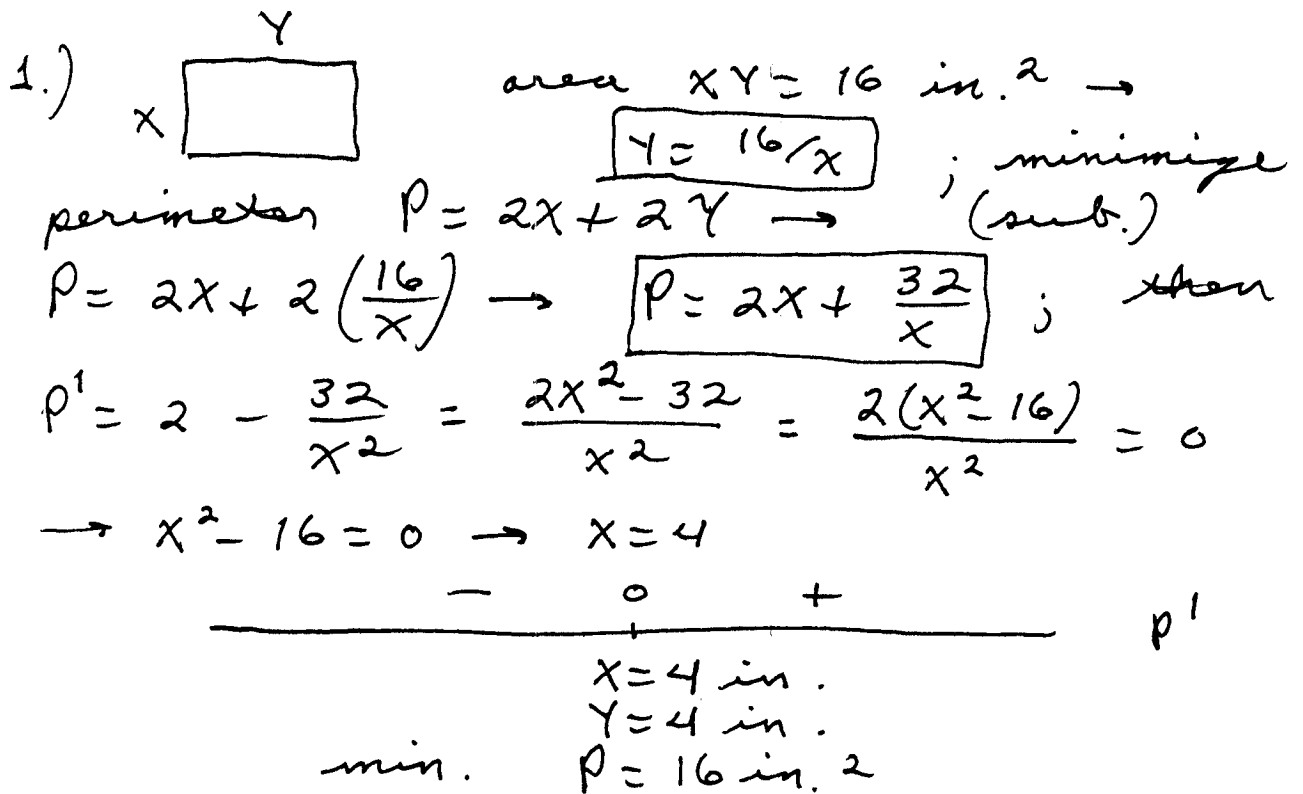 1.) Y
X
area XY = 16 in.² →
Y = 16/X ; minimize
perimeter P = 2X + 2Y → (sub.)
P = 2X + 2(16/X) → P = 2X + 32/X ; then
P' = 2 - 32/X² = (2X² - 32)/X² = 2(X² - 16)/X² = 0
→ X² - 16 = 0 → X = 4
- 0 + P'
X = 4 in.
Y = 4 in.
min. P = 16 in.²